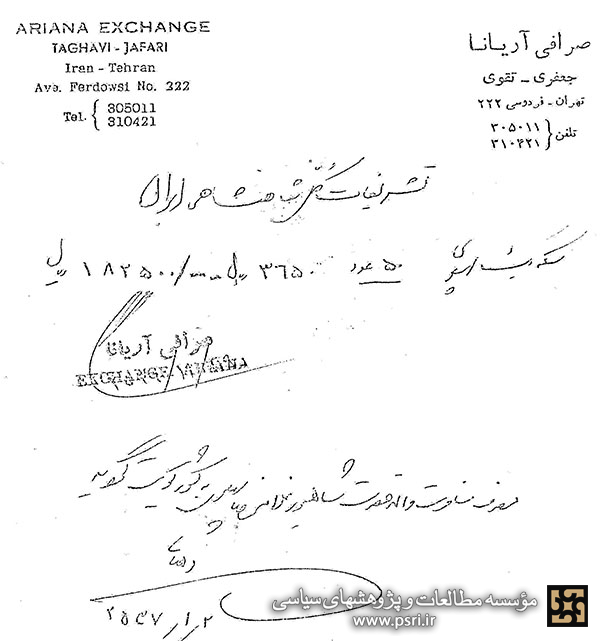 ARIANA EXCHANGE
TAGHAVI - JAFARI
Iran - Tehran
Ave. Ferdowsi No. 322
Tel. { 305011
310421
صرافی آریانا
جعفری - تقوی
تهران - فردوسی ۳۲۲
تلفن { ۳۰۵۰۱۱
۳۱۰۴۲۱
تشریفات کل شاهنشاهی ایران
سکه ۵۰ عدد ۳۶۵۰ ریال ۱۸۲۵۰۰/ ریال
صرافی آریانا
EXCHANGE ARIANA
مصرف مسافرت والاحضرت شاهپور غلامرضا پهلوی به کشور کویت گردید
۲۵۳۷/۱/۲
مؤسسه مطالعات و پژوهشهای سیاسی
www.psri.ir